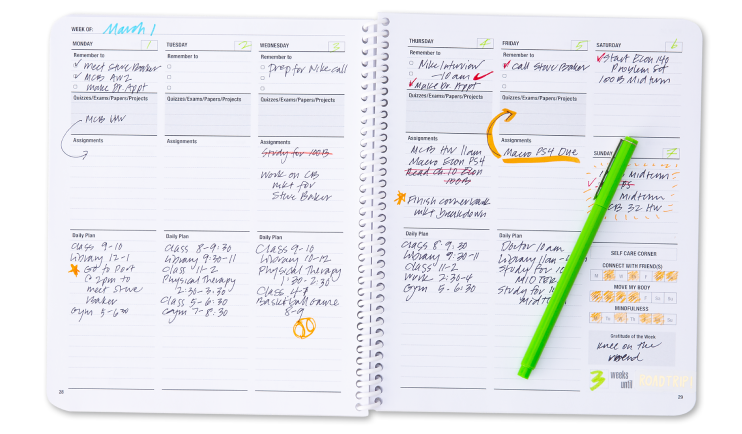 WEEK OF: March 1
MONDAY 1
Remember to
meet Steve Baker
MCB HW 2
Make Dr. Appt
Quizzes/Exams/Papers/Projects
MCB HW
Assignments
Daily Plan
Class 9-10
Library 12-1
Got to Port
@ 2pm to
meet Steve
Baker
Gym 5-6:00
28
TUESDAY 2
Remember to
Quizzes/Exams/Papers/Projects
Assignments
Daily Plan
Class 8-9:30
Library 9:30-11
Class 11-2
Physical Therapy
2:30-3:30
Class 5-6:30
Gym 7-8:30
WEDNESDAY 3
Remember to
Prep for Nike call
Quizzes/Exams/Papers/Projects
Assignments
Study for 100B
Work on CB
mkt for
Steve Baker
Daily Plan
Class 9-10
Library 10-12
Physical Therapy
1:30-2:30
Class 4-7
Basketball Game
8-9
THURSDAY 4
Remember to
Nike Interview
-10am
Make Dr. Appt
Quizzes/Exams/Papers/Projects
Assignments
MCB HW 11am
Macro Econ PS4
Read Ch. 10 Econ
100B
Finish cornerback
mkt breakdown
Daily Plan
Class 8-9:30
Library 9:30-11
Class 11-2
Work 2:30-4
Gym 5-6:30
FRIDAY 5
Remember to
Call Steve Baker
Quizzes/Exams/Papers/Projects
Assignments
Macro PS4 Due
Daily Plan
Doctor 10am
Library 11am
Study for
Study for
SATURDAY 6
Start Econ 140
Problem Set
100B Midterm
SUNDAY 7
Midterm
Midterm
32 HW
SELF CARE CORNER
CONNECT WITH FRIEND(S)
M W F
MOVE MY BODY
F Sa Su
MINDFULNESS
M Tu Th Sa Su
Gratitude of the Week
Knee on the
mend
3 weeks
until ROADTRIP!
29